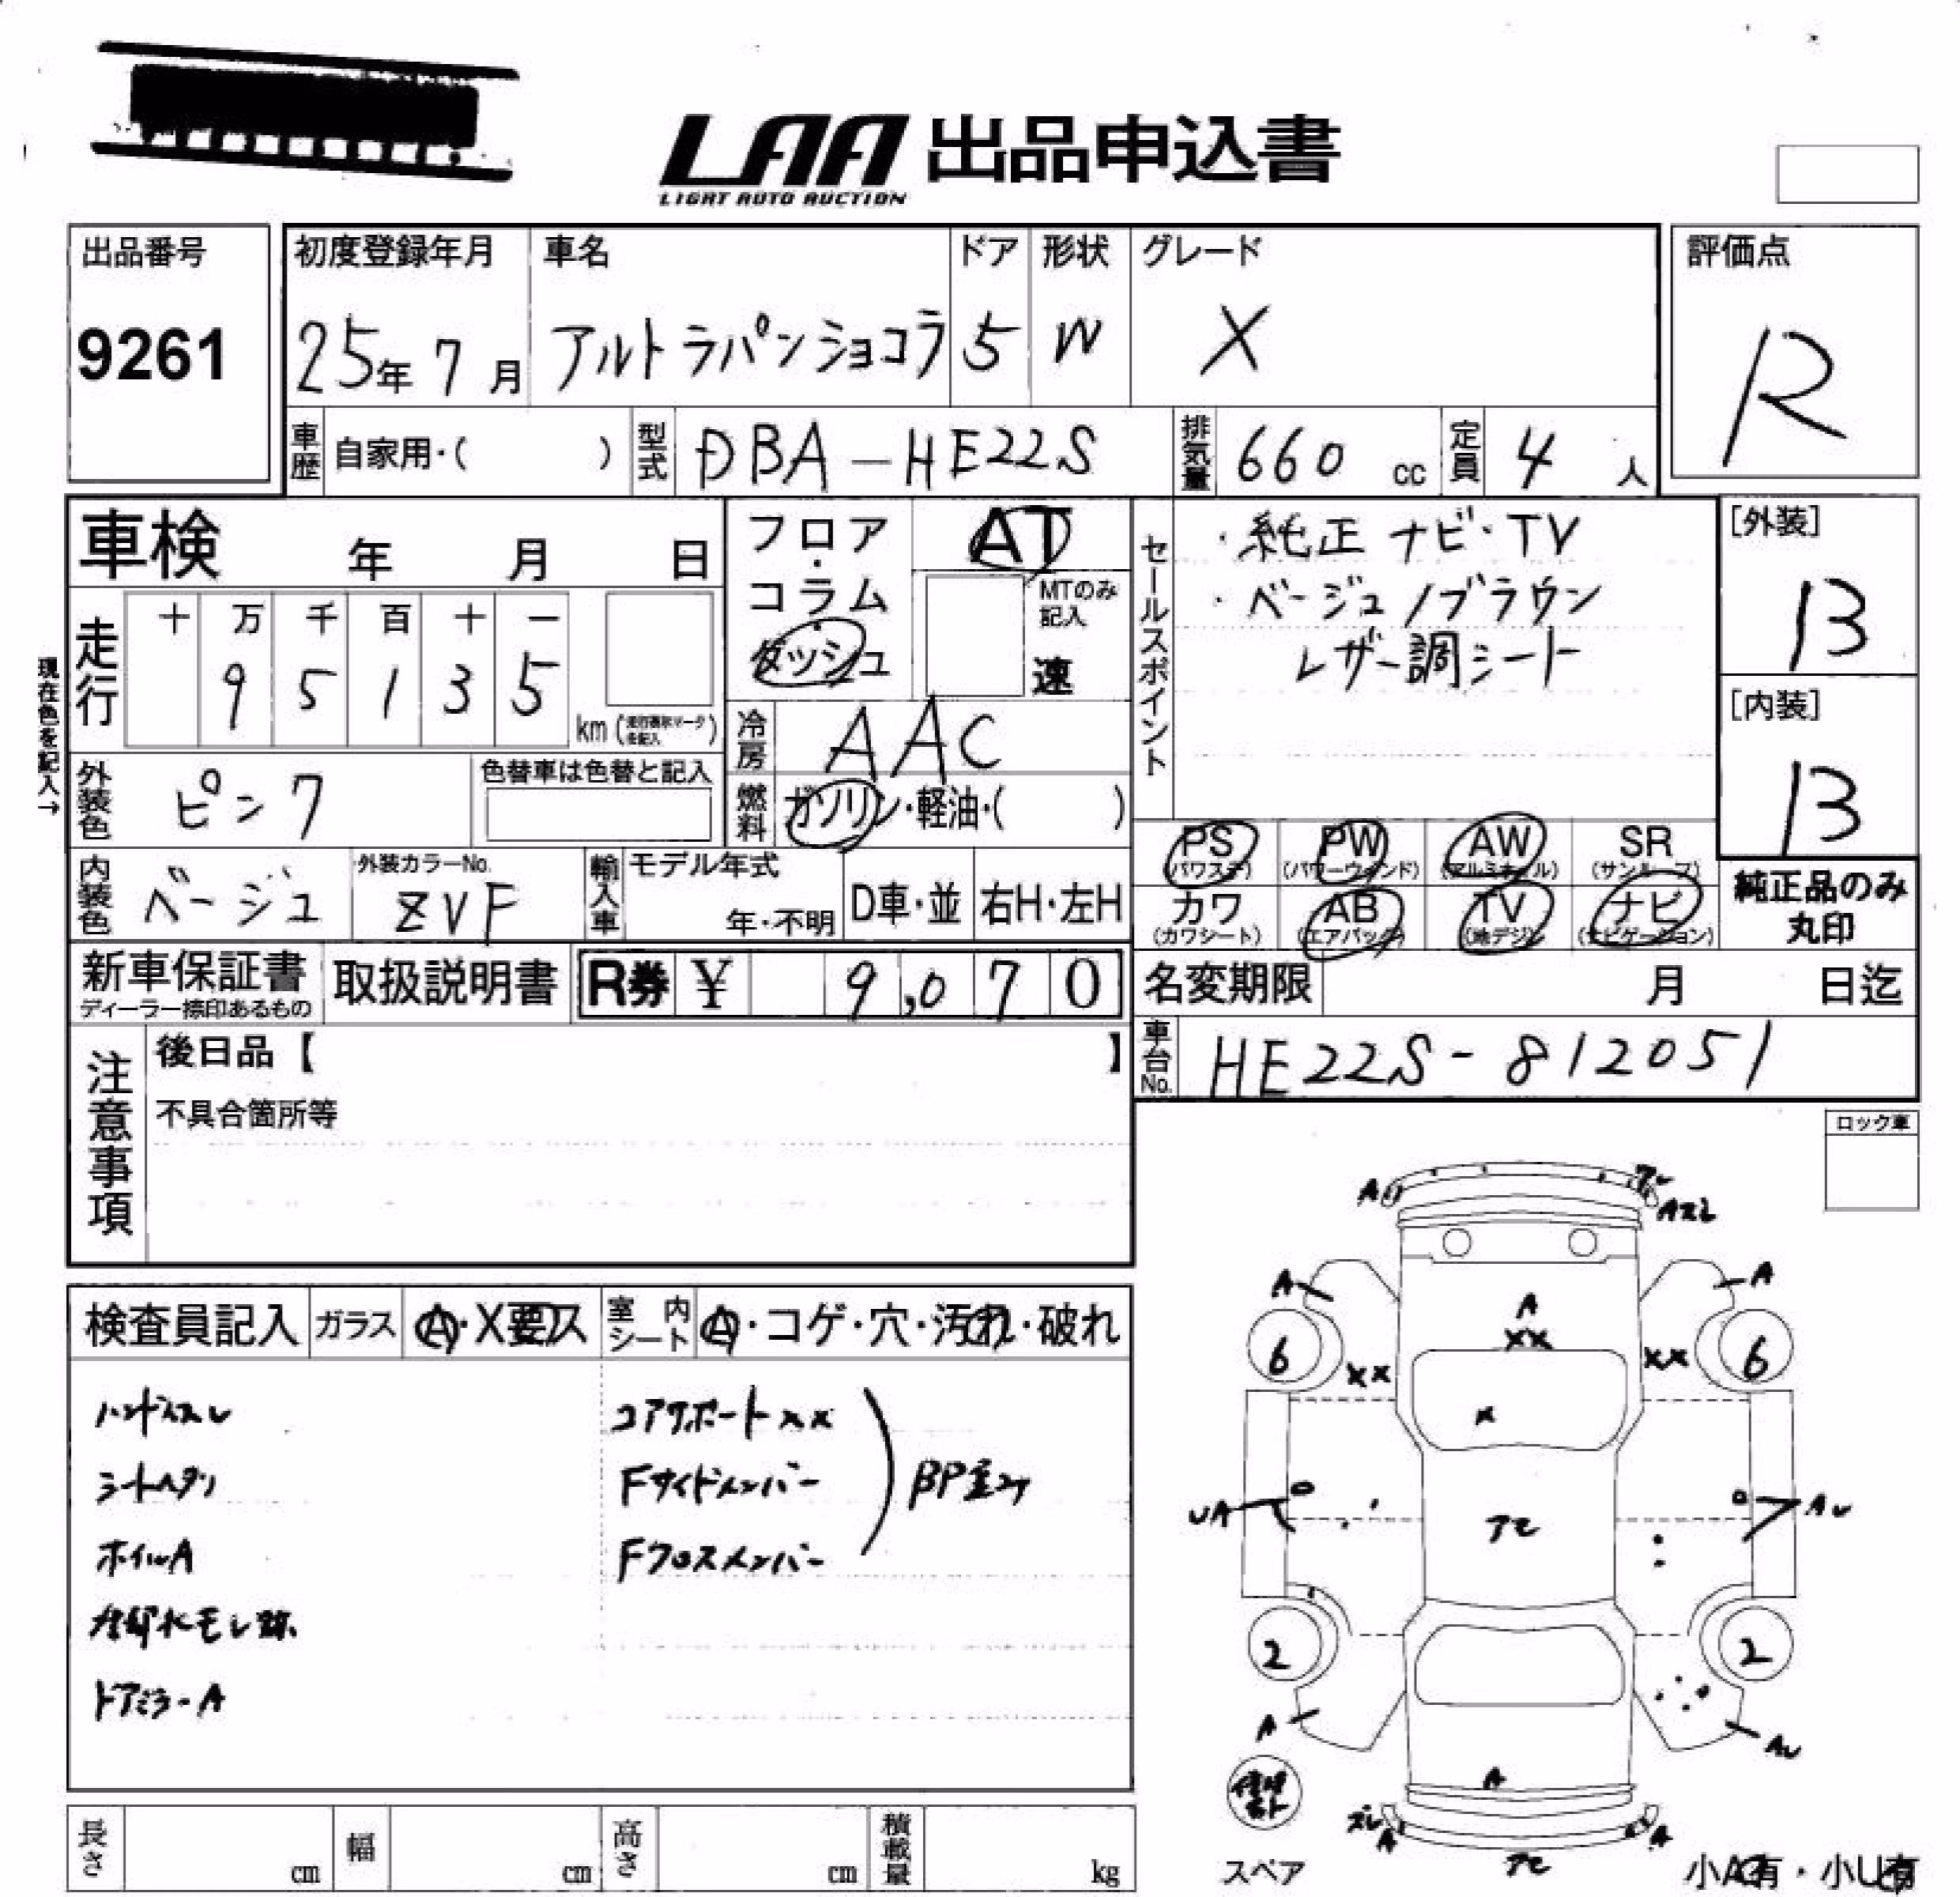 LAA 出品申込書
LIGHT AUTO AUCTION
出品番号
9261
初度登録年月
25年 7月
車名
アルトラパンショコラ
ドア
5
形状
W
グレード
X
評価点
R
車歴 自家用・( )
型式 DBA-HE22S
排気量 660 cc
定員 4 人
車検 年 月 日
フロア・コラム・ダッシュ
AT
MTのみ記入
速
セールスポイント
・純正 ナビ・TV
・ベージュ/ブラウン
レザー調シート
[外装]
B
[内装]
B
現在色を記入→
走行
十 万 千 百 十 一
9 5 1 3 5
km
冷房 AAC
外装色 ピンク
色替車は色替と記入
燃料 ガソリン・軽油・( )
PS (パワステ)
PW (パワーウインド)
AW (アルミホイル)
SR (サンルーフ)
カワ (カワシート)
AB (エアバック)
TV (地デジ)
ナビ (ナビゲーション)
純正品のみ
丸印
内装色 ベージュ
外装カラーNo.
ZVF
輸入車
モデル年式
年・不明
D車・並
右H・左H
新車保証書
ディーラー捺印あるもの
取扱説明書
R券 ¥ 9,070
名変期限 月 日迄
車台No. HE22S-812051
注意事項
後日品【 】
不具合箇所等
ロック車
検査員記入
ガラス A・X要・ス
室内シート A・コゲ・穴・汚れ・破れ
ハンドルスレ
シートヘタリ
ホイルA
冷却水モレ跡
ドアミラーA
コアサポートXX
Fサイドメンバー
Fクロスメンバー
BP歪み
A
アレ
Aスレ
A
A
A
XX
6
6
XX
XX
X
UA
AU
アセ
2
2
A
AU
A
修理キット
スペア
ズレ
A
A
アセ
小A有・小U有
長さ cm
幅 cm
高さ cm
積載量 kg